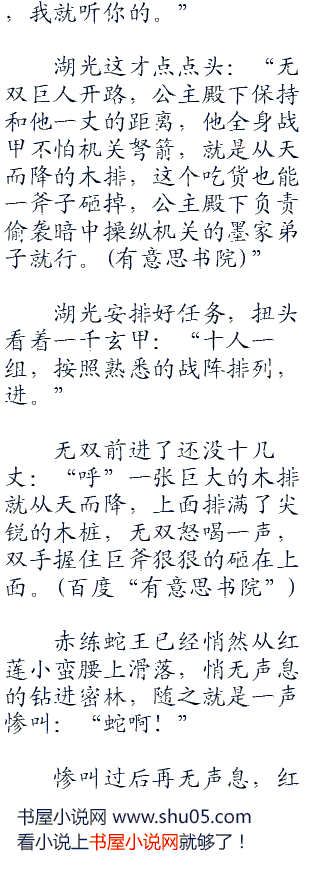 ，我就听你的。”
湖光这才点点头：“无
双巨人开路，公主殿下保持
和他一丈的距离，他全身战
甲不怕机关弩箭，就是从天
而降的木排，这个吃货也能
一斧子砸掉，公主殿下负责
偷袭暗中操纵机关的墨家弟
子就行。(有意思书院)”
湖光安排好任务，扭头
看着一千玄甲：“十人一
组，按照熟悉的战阵排列，
进。”
无双前进了还没十几
丈：“呼”一张巨大的木排
就从天而降，上面排满了尖
锐的木桩，无双怒喝一声，
双手握住巨斧狠狠的砸在上
面。(百度“有意思书院”)
赤练蛇王已经悄然从红
莲小蛮腰上滑落，悄无声息
的钻进密林，随之就是一声
惨叫：“蛇啊！”
惨叫过后再无声息，红
书屋小说网 www.shu05.com
看小说上书屋小说网就够了！